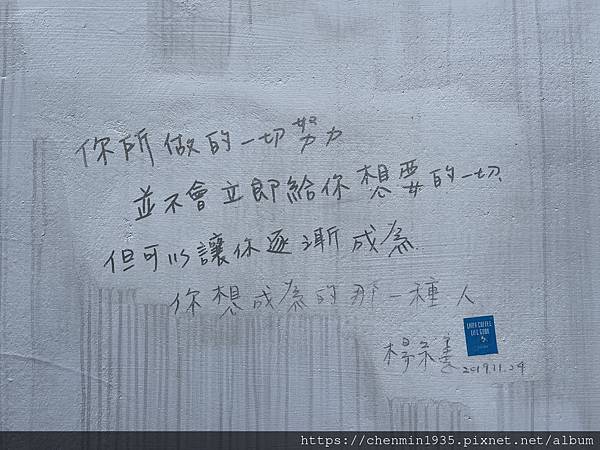 你所做的一切努力
並不會立即給你想要的一切
但可以讓你逐漸成為
你想成為的那一種人
楊
2019.11.24
https://chenmin1935.pixnet.net/album